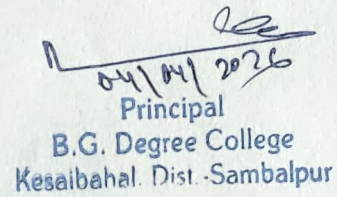 04/04/2026
Principal
B.G. Degree College
Kesaibahal. Dist.-Sambalpur